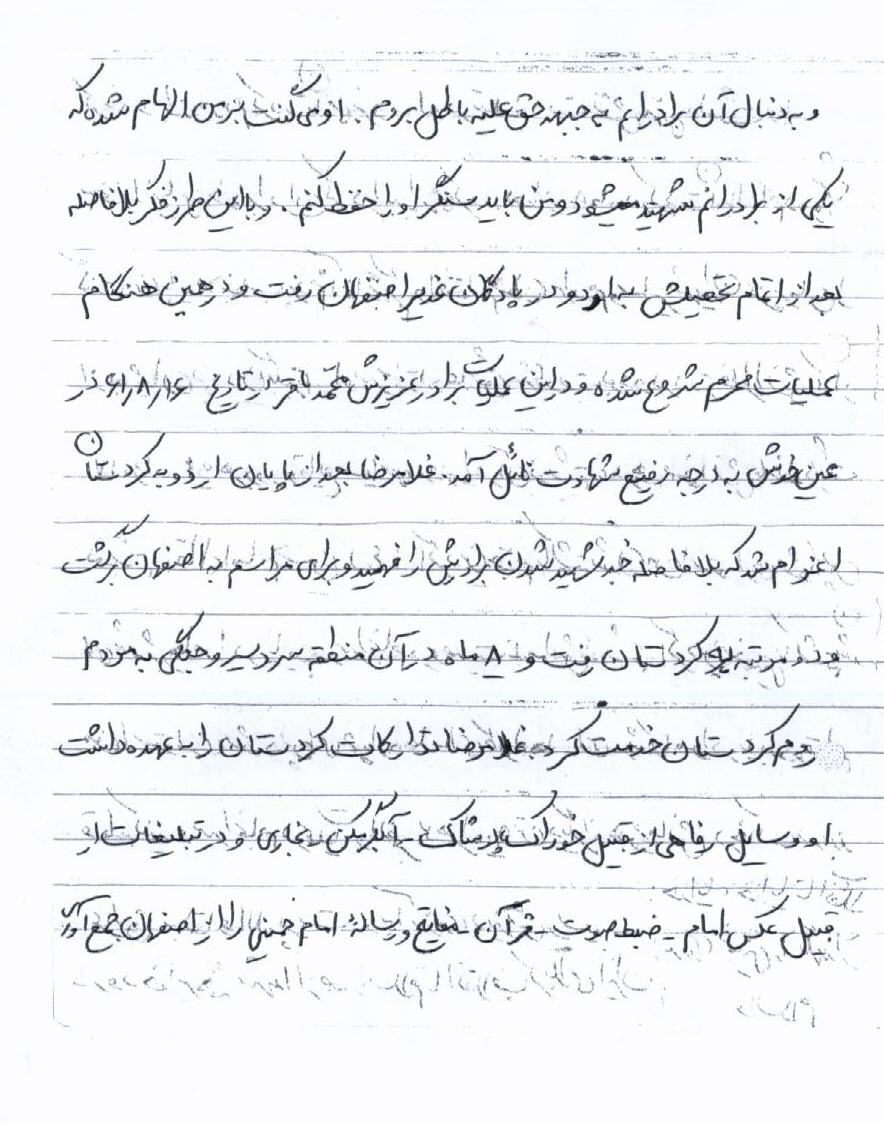 و به دنبال آن برادرانم به جبهه حق علیه باطل بروم. او می گفت بر من الهام شده که
یکی از برادرانم شهید میشود و من باید سنگر او را حفظ کنم. و با این طرز فکر بلافاصله
بعد از اتمام تحصیلش به اردو در پادگان غدیر اصفهان رفت و در همین هنگام
عملیات محرم شروع شده و در این عملیات برادر عزیزش محمد باقر در تاریخ ۶۱٫۸٫۱۶ در
عین خوش به درجه رفیع شهادت نائل آمد. غلامرضا بعد از پایان اردو به کردستان
اعزام شد که بلافاصله خبر شهید شدن برادرش را فهمید و برای مراسم به اصفهان برگشت
و دو مرتبه به کردستان رفت و ۸ ماه در آن منطقه سردسیر و جنگی به مردم
محروم کردستان خدمت کرد. غلامرضا تدارکات کردستان را به عهده داشت
او وسایل رفاهی از قبیل خوراک پوشاک - آبگرمکن - بخاری و در تبلیغات از
قبیل عکس امام - ضبط صوت - قرآن - مفاتیح و رساله امام خمینی را از اصفهان جمع آوری